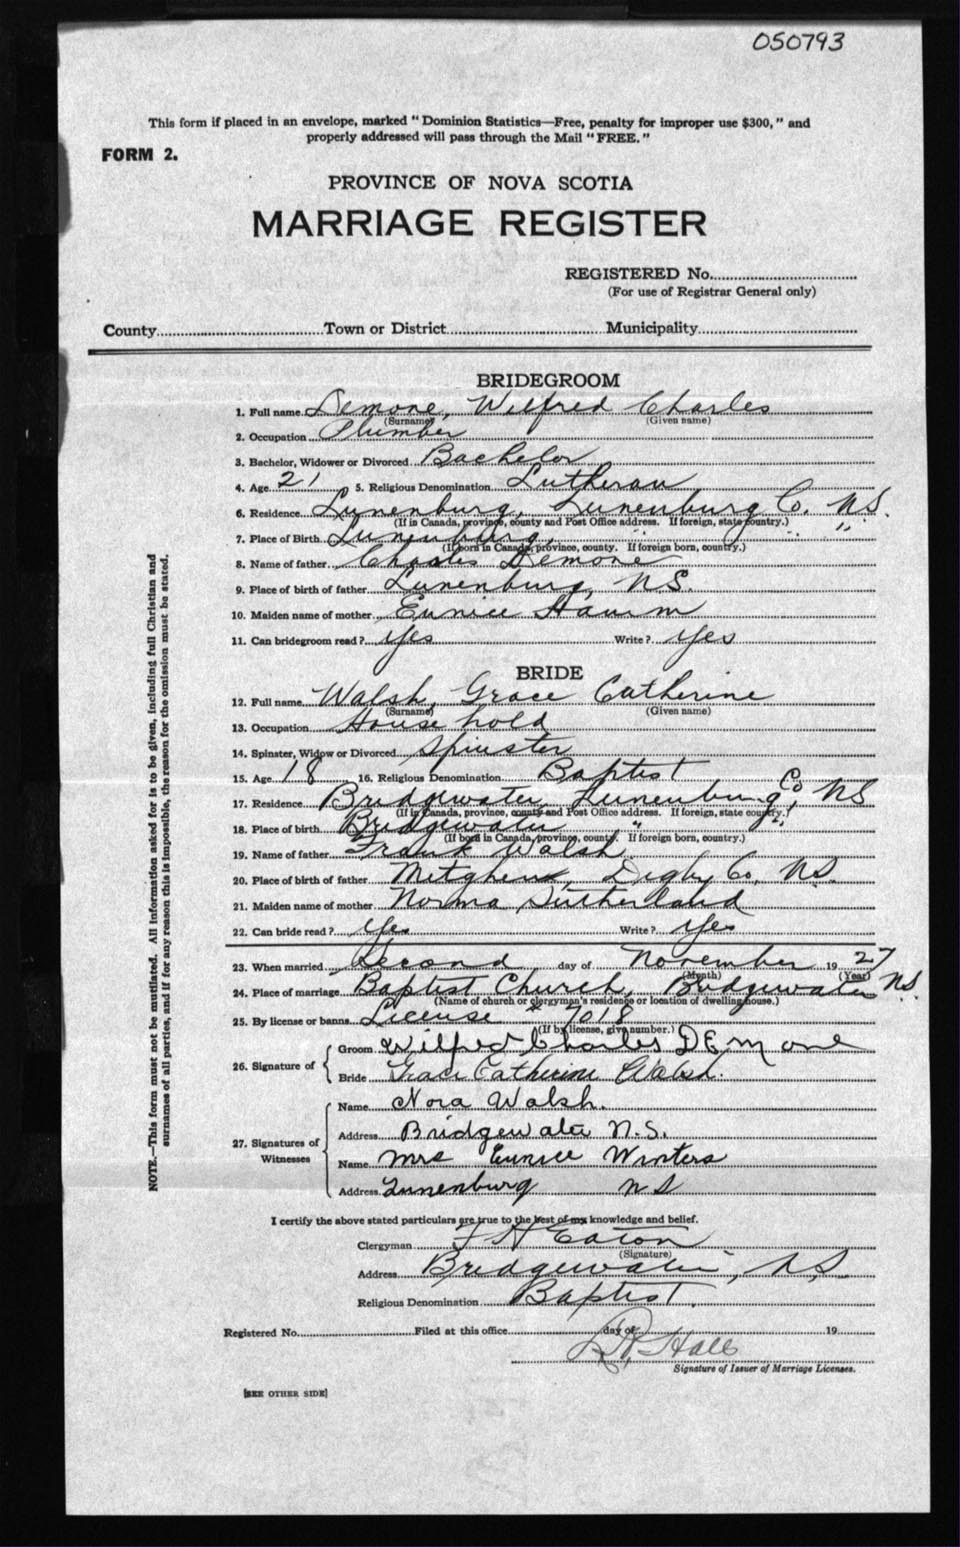 050793
This form if placed in an envelope, marked "Dominion Statistics—Free, penalty for improper use $300," and
properly addressed will pass through the Mail "FREE."
FORM 2.
PROVINCE OF NOVA SCOTIA
MARRIAGE REGISTER
REGISTERED No.
(For use of Registrar General only)
County Town or District Municipality
BRIDEGROOM
1. Full name Demone, Wilfred Charles
(Surname) (Given name)
2. Occupation Plumber
3. Bachelor, Widower or Divorced Bachelor
4. Age 21 5. Religious Denomination Lutheran
6. Residence Lunenburg, Lunenburg Co. N.S.
(If in Canada, province, county and Post Office address. If foreign, state country.)
7. Place of Birth Lunenburg, " " "
(If born in Canada, province, county. If foreign born, country.)
8. Name of father Charles Demone
9. Place of birth of father Lunenburg, N.S.
10. Maiden name of mother Eunice
11. Can bridegroom read? Yes Write? Yes
BRIDE
12. Full name Walsh, Grace Catherine
(Surname) (Given name)
13. Occupation Household
14. Spinster, Widow or Divorced Spinster
15. Age 18 16. Religious Denomination Baptist
17. Residence Bridgewater, Lunenburg Co, NS
(If in Canada, province, county and Post Office address. If foreign, state country.)
18. Place of birth Bridgewater " "
(If born in Canada, province, county. If foreign born, country.)
19. Name of father Frank Walsh
20. Place of birth of father Digby Co, N.S.
21. Maiden name of mother Norma Sutherland
22. Can bride read? Yes Write? Yes
23. When married Second day of November 1927
(Month) (Year)
24. Place of marriage Baptist Church, Bridgewater N.S.
(Name of church or clergyman's residence or location of dwelling house.)
25. By license or banns License # 7018
(If by license, give number.)
26. Signature of { Groom Wilfred Charles DEmone
Bride Grace Catherine Walsh.
27. Signatures of Witnesses { Name Nora Walsh.
Address Bridgewater N.S.
Name Mrs Eunice Winters
Address Lunenburg NS
I certify the above stated particulars are true to the best of my knowledge and belief.
Clergyman F H Eaton
(Signature)
Address Bridgewater, N.S.
Religious Denomination Baptist.
Registered No. Filed at this office day of 19
Hall
Signature of Issuer of Marriage Licenses.
[SEE OTHER SIDE]
NOTE.—This form must not be mutilated. All information asked for is to be given, including full Christian and
surnames of all parties, and if for any reason this is impossible, the reason for the omission must be stated.